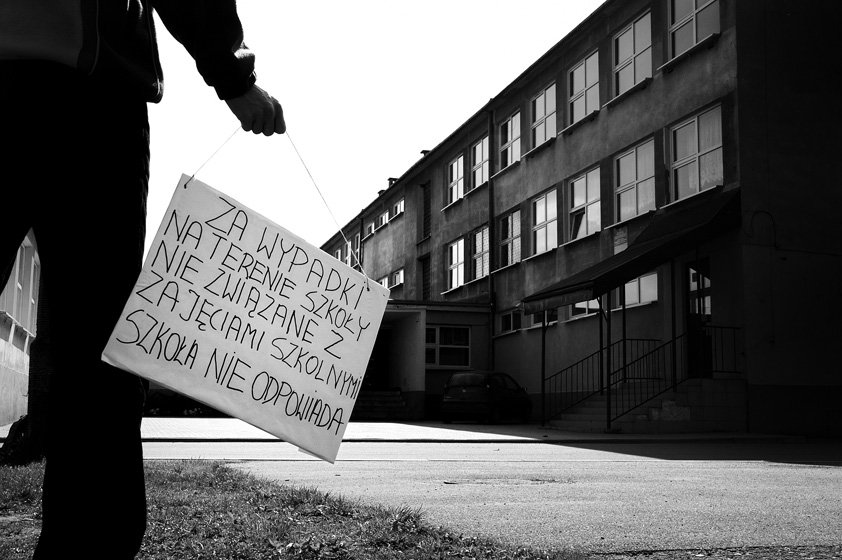 ZA WYPADKI
NA TERENIE SZKOŁY
NIE ZWIĄZANE Z
ZAJĘCIAMI SZKOLNYMI
SZKOŁA NIE ODPOWIADA